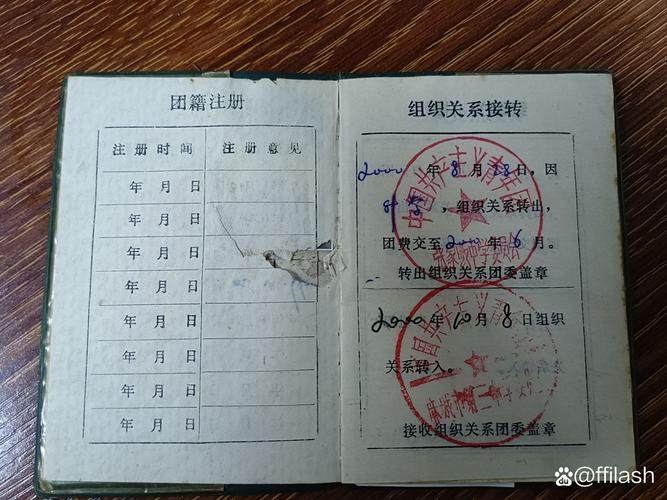 团籍注册
注册时间 注册意见
年 月 日
年 月 日
年 月 日
年 月 日
年 月 日
年 月 日
年 月 日
年 月 日
组织关系接转
2000年8月28日,因
,组织关系转出,
团费交至2000年6月。
转出组织关系团委盖章
中国共产主义青年团
2000年10月8日组织
关系转入。
接收组织关系团委盖章
中国共产主义青年团
@ffilash